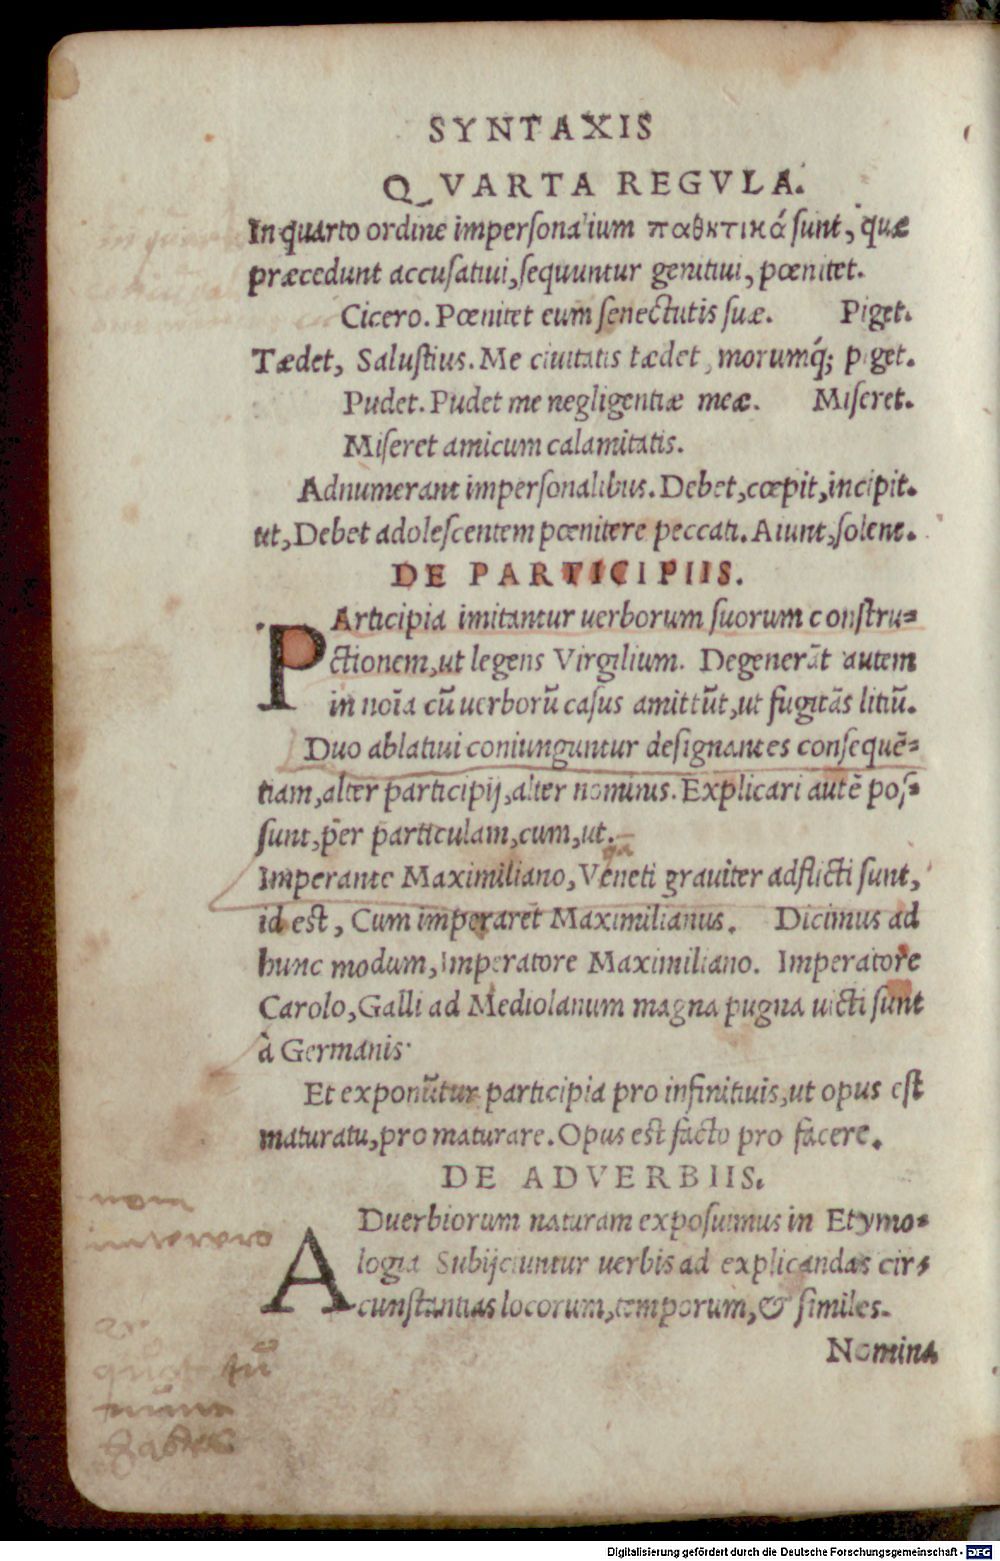 SYNTAXIS
QVARTA REGVLA.
In quarto ordine impersonalium παθητικά sunt, quæ
præcedunt accusatiui, sequuntur genitiui, pœnitet.
Cicero. Pœnitet eum senectutis suæ. Piget.
Tædet, Salustius. Me ciuitatis tædet, morumq́; piget.
Pudet. Pudet me negligentiæ meæ. Miseret.
Miseret amicum calamitatis.
Adnumerant impersonalibus. Debet, cœpit, incipit.
ut, Debet adolescentem pœnitere peccati. Aiunt, solent.
DE PARTICIPIIS.
PArticipia imitantur uerborum suorum constru=
ctionem, ut legens Virgilium. Degenerāt autem
in noīa cū uerborū casus amittūt, ut fugitās litiū.
Duo ablatiui coniunguntur designantes consequē=
tiam, alter participij, alter nominis. Explicari autē pos=
sunt, per particulam, cum, ut.
Imperante Maximiliano, Veneti grauiter adflicti sunt,
id est, Cum imperaret Maximilianus. Dicimus ad
hunc modum, Imperatore Maximiliano. Imperatore
Carolo, Galli ad Mediolanum magna pugna uicti sunt
à Germanis.
Et exponūtur participia pro infinitiuis, ut opus est
maturatu, pro maturare. Opus est facto pro facere.
DE ADVERBIIS.
ADuerbiorum naturam exposuimus in Etymo=
logia Subijciuntur uerbis ad explicandas cir=
cunstantias locorum, temporum, & similes.
Nomina
Digitalisierung gefördert durch die Deutsche Forschungsgemeinschaft - DFG